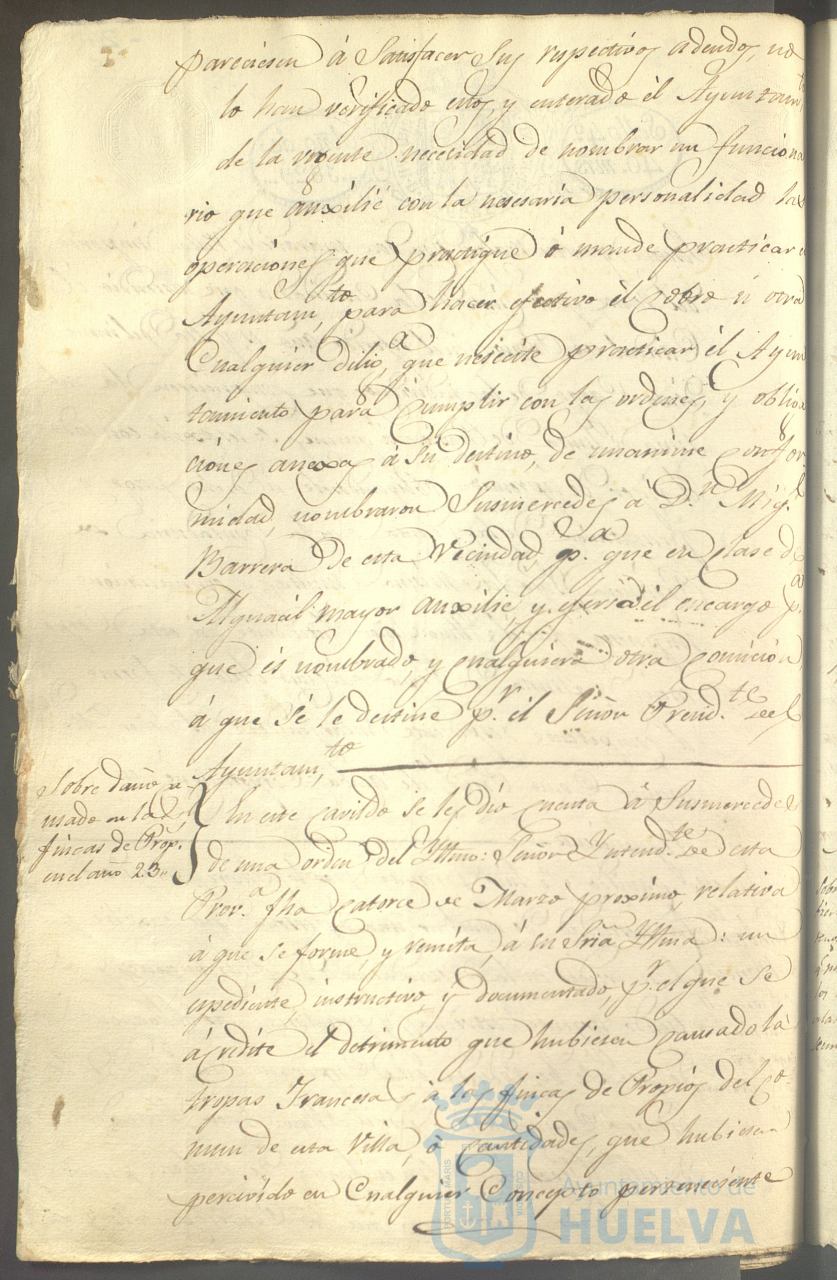 pareciesen á Satisfacer sus respectivos adeudos, no
lo han verificado estos, y enterado él Ayuntamto
de la urgente necesidad de nombrar un funciona
rio que auxilie con la nesesaria personalidad las
operaciones que practique ó mande practicar el
Ayuntamto, para hacer efectivo él cobro ú otra
Cualquier dilica, que nesecite practicar él Ayun
tamiento para cumplir con las ordenes, y obliga
ciones anexas á su destino, de unanime confor
midad, nombraron Susmercedes á Dn Migl
Barrera de esta Vecindad, pa que en clase de
Alguacil mayor auxilie, y el encargo pa
que és nombrado, y cualquiera otra comición,
á que sé le destine pr él Señor Presidte del
Ayuntamto
Sobre daño ca
usado en las
fincas de Propos
en el año 23
En este cavildo se les dio cuenta á Susmercedes
de una orden del Yltmo: Señor Yntendte de esta
Prova fha catorce de Marzo proximo, relativa
á que se forme, y remita, á su Sria Yltma: un
espediente, instructivo, y documentado, pr el que se
ácredite el detrimento que hubiesen causado la
tropas Francesas á las fincas de Propios del Co-
mun de esta Villa, ó cantidades, que hubiesen
percivido en Cualquier Concepto perteneciente
Ayuntamiento de
HUELVA